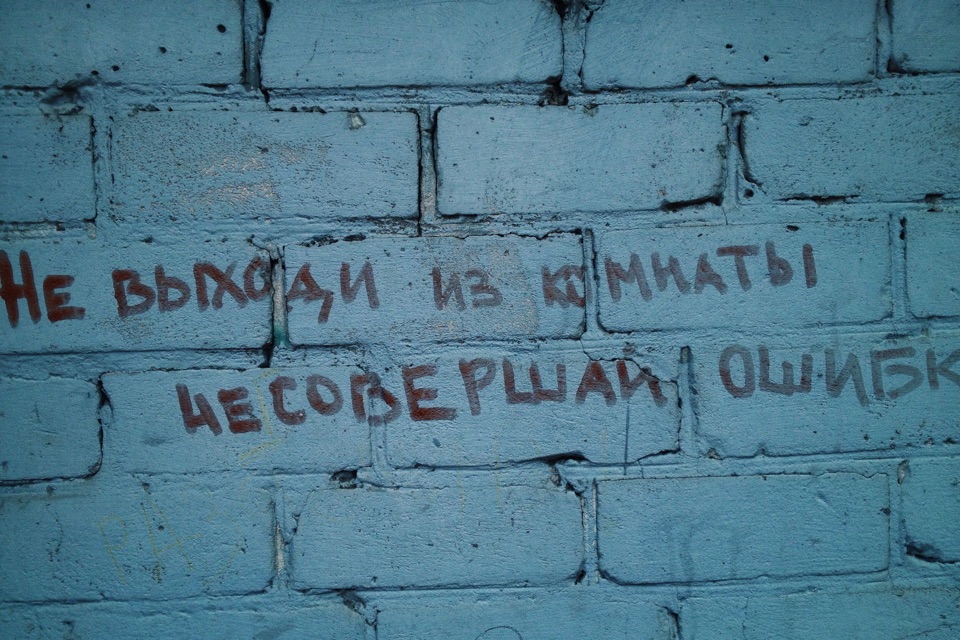 НЕ ВЫХОДИ ИЗ КОМНАТЫ
НЕ СОВЕРШАЙ ОШИБК